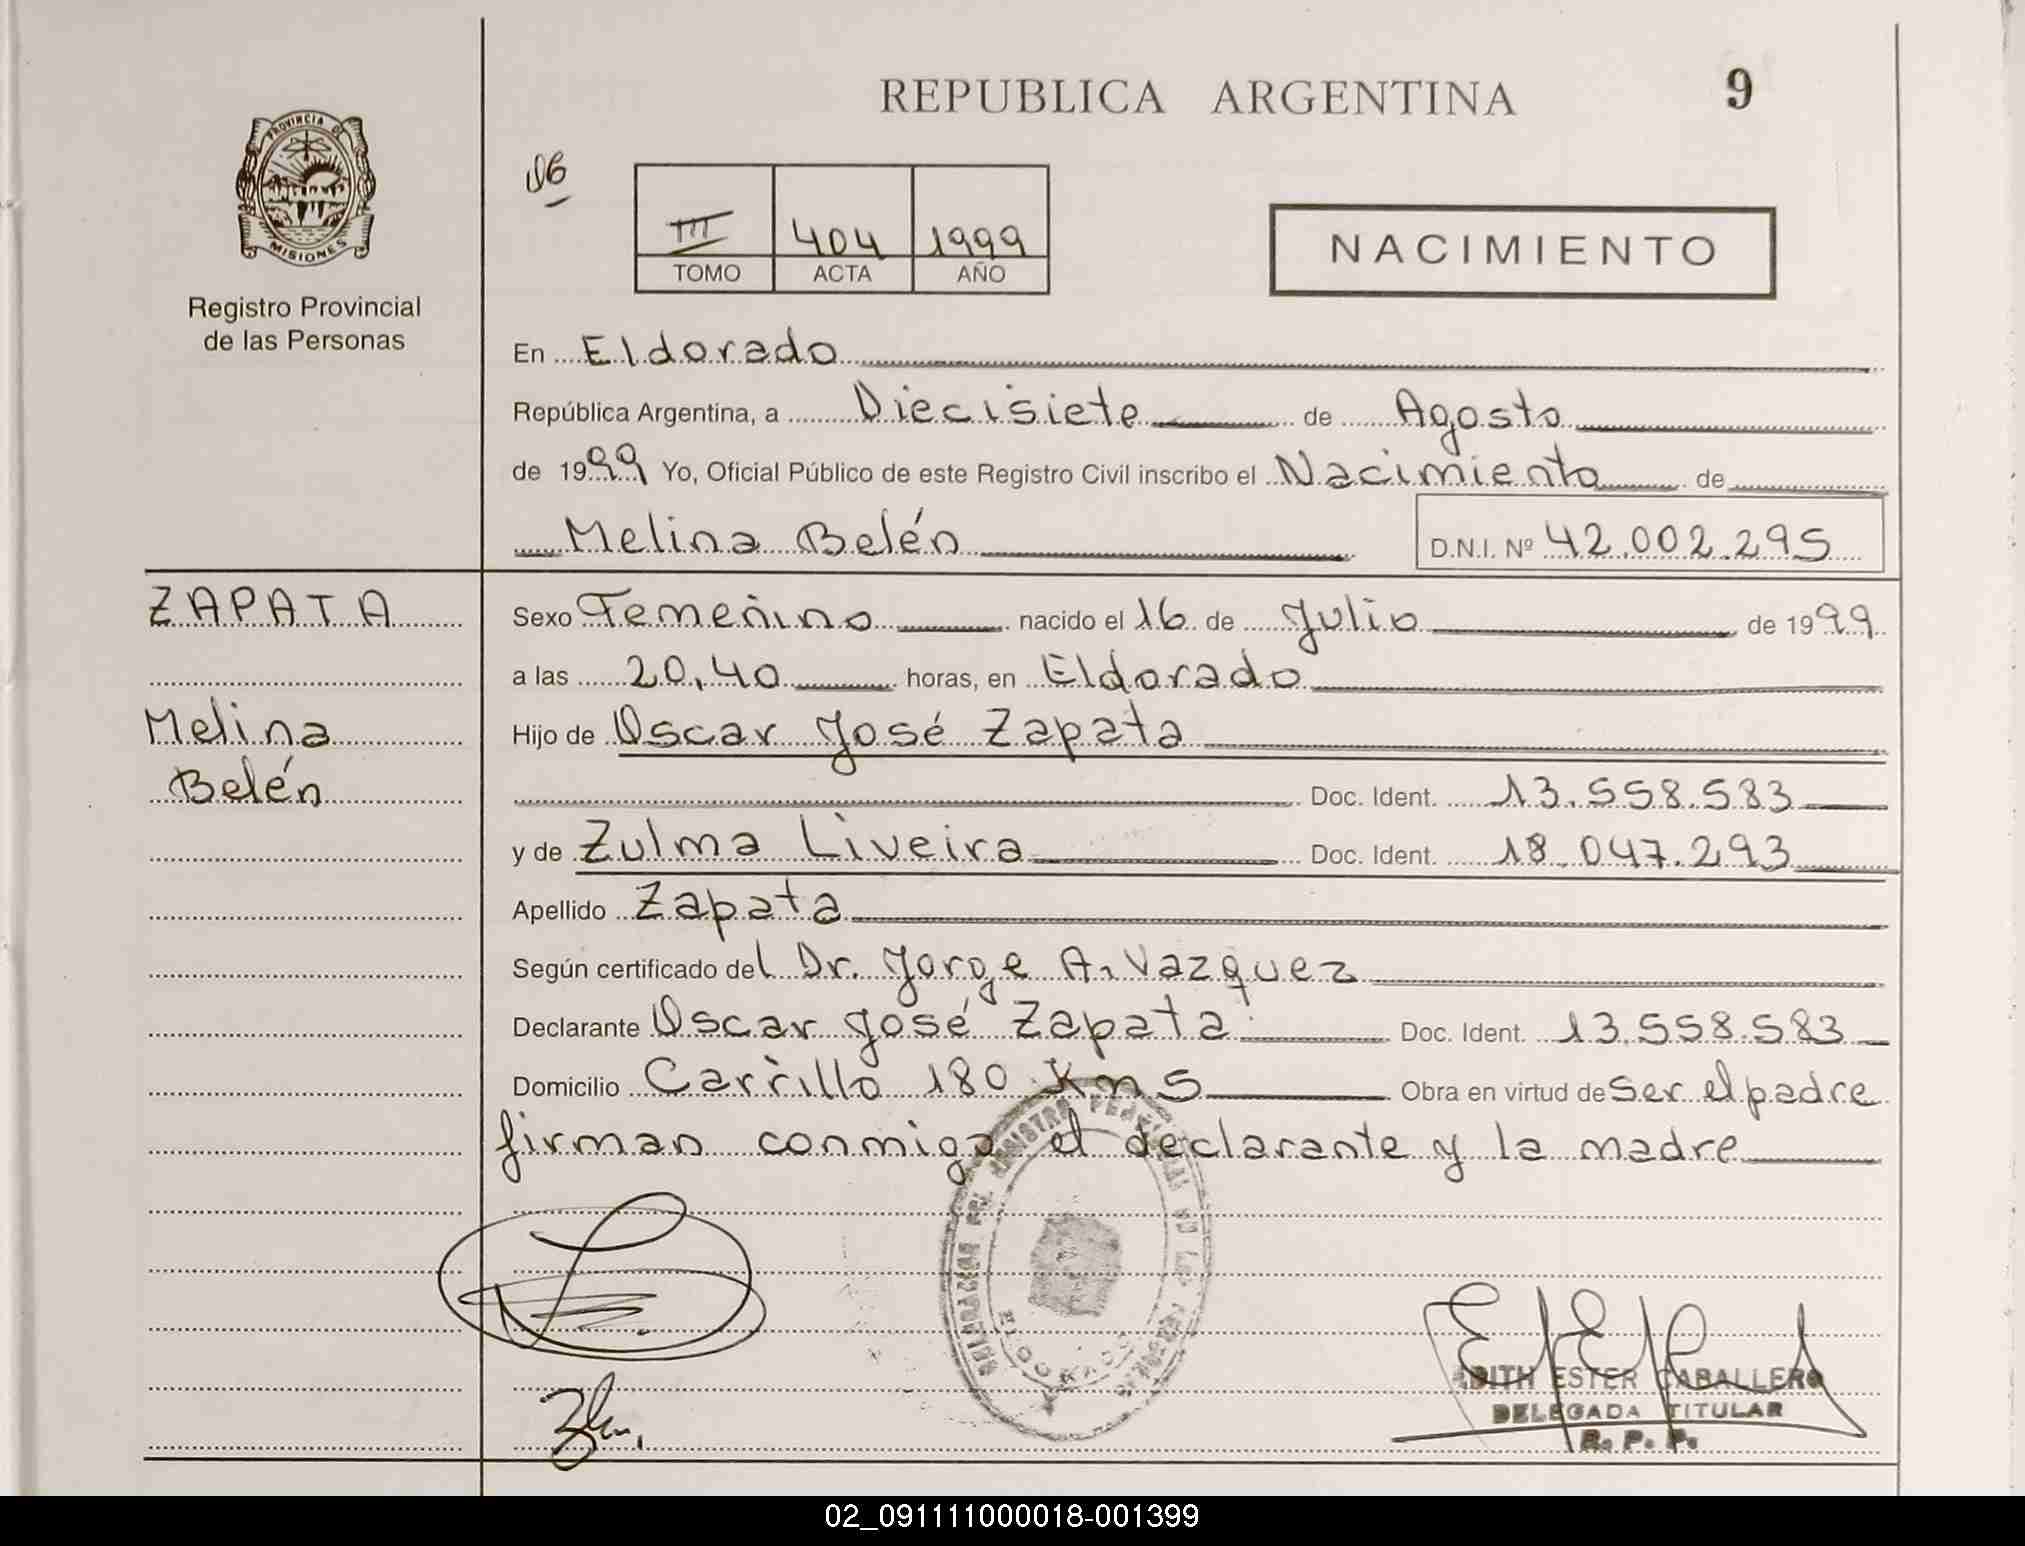 REPUBLICA ARGENTINA
9
PROVINCIA DE
MISIONES
Registro Provincial
de las Personas
III 404 1999
TOMO ACTA AÑO
NACIMIENTO
En Eldorado
República Argentina, a Diecisiete de Agosto
de 1999 Yo, Oficial Público de este Registro Civil inscribo el Nacimiento de
Melina Belén D.N.I. Nº 42.002.295
ZAPATA
Melina
Belén
Sexo Femenino nacido el 16 de Julio de 1999
a las 20,40 horas, en Eldorado
Hijo de Oscar José Zapata
Doc. Ident. 13.558.583
y de Zulma Liveira Doc. Ident. 18.047.293
Apellido Zapata
Según certificado del Dr. Jorge A. Vazquez
Declarante Oscar José Zapata Doc. Ident. 13.558.583
Domicilio Carrillo 180 Kms Obra en virtud de ser el padre
firman conmigo el declarante y la madre
ELDORADO
EDITH ESTER CABALLERO
DELEGADA TITULAR
R. P. P.
02_091111000018-001399